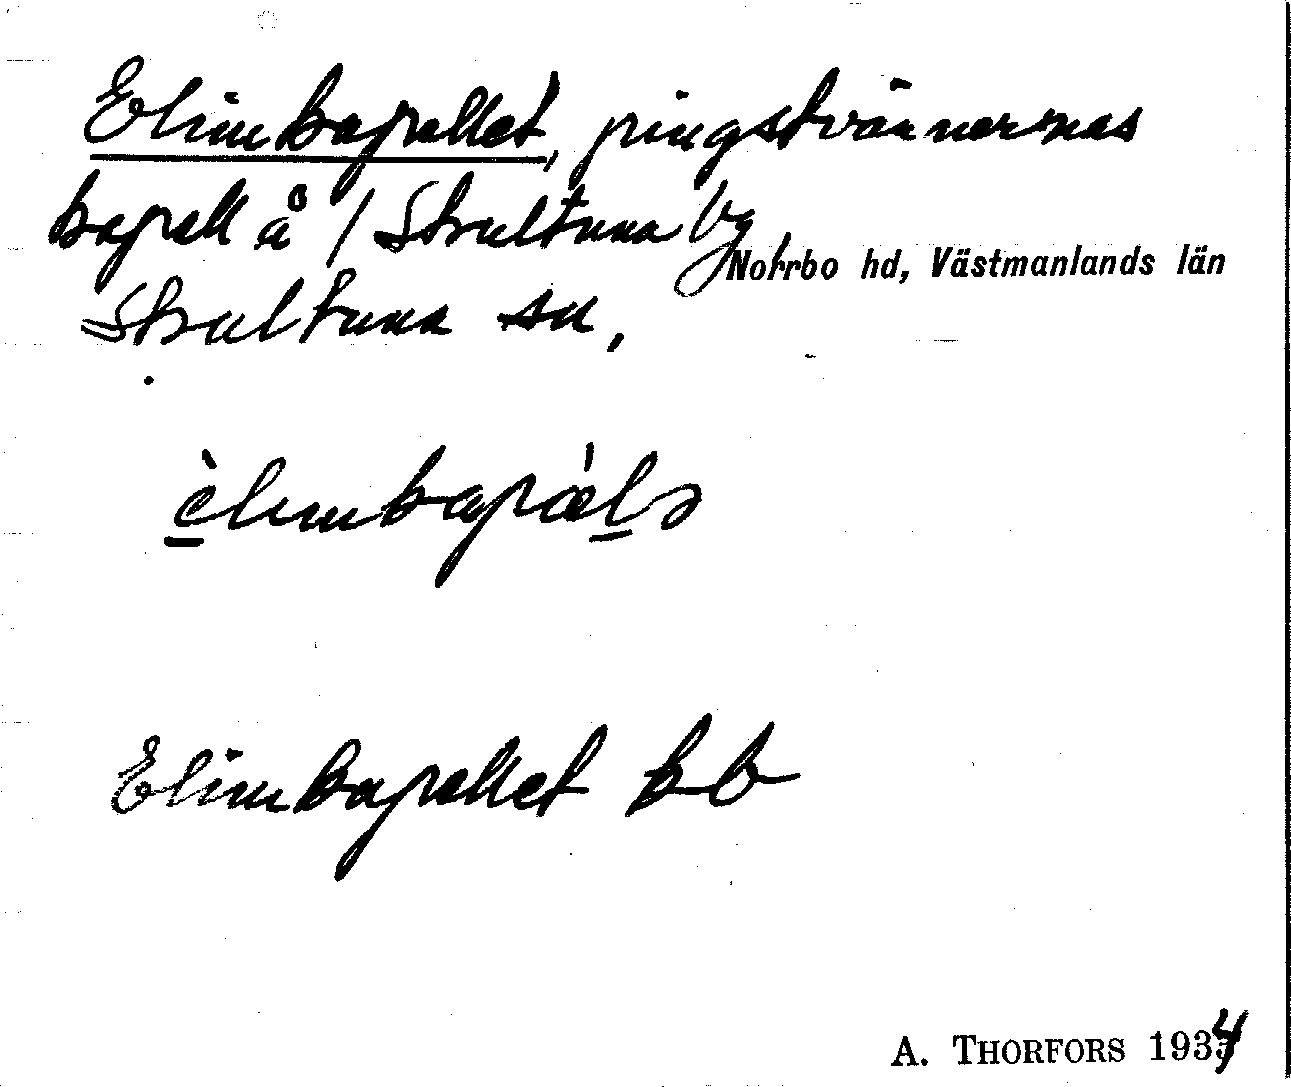 Elimkapellet, pingstvännernas
kapell å 1 Skultuna by,
Norrbo hd, Västmanlands län
Skultuna sn,
èlimkapä́lə
Elimkapellet kb
A. THORFORS 1934